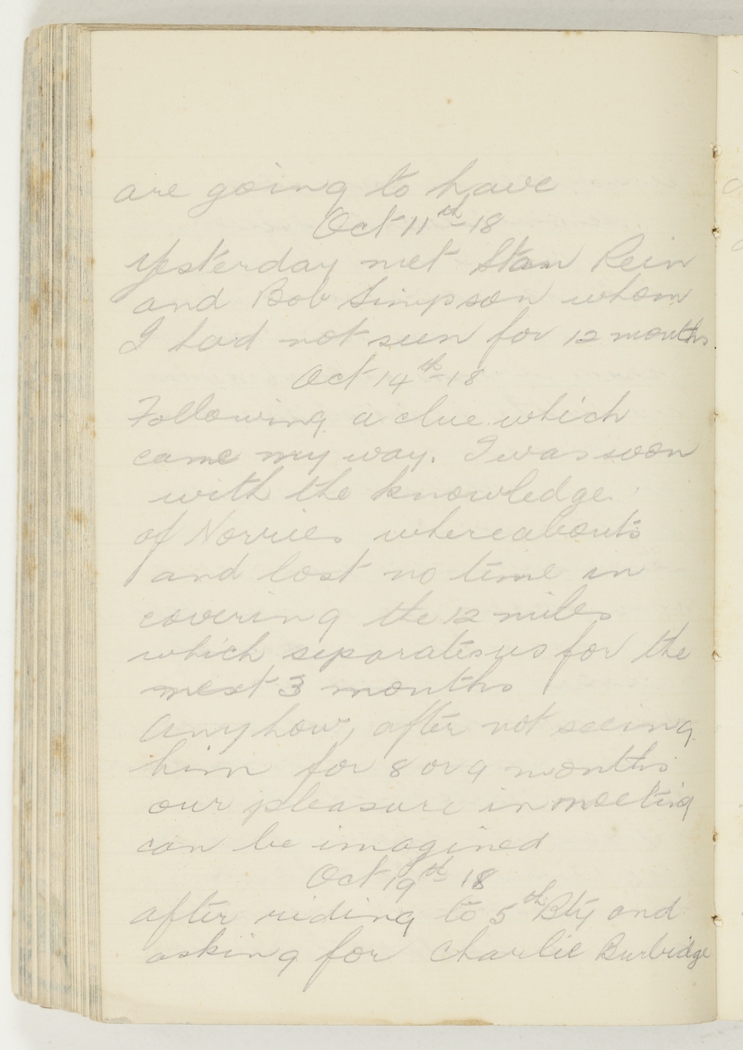 are going to have
Oct 11th-18
Yesterday met Stan Rein
and Bob Simpson whom
I had not seen for 12 months
Oct 14th-18
Following a clue which
came my way. I was soon
with the knowledge
of Norries whereabouts
and lost no time in
covering the 12 miles
which separates us for the
next 3 months
Anyhow, after not seeing
him for 8 or 9 months
our pleasure in meeting
can be imagined
Oct 19th-18
after riding to 5th Bty and
asking for Charlie Burbidge